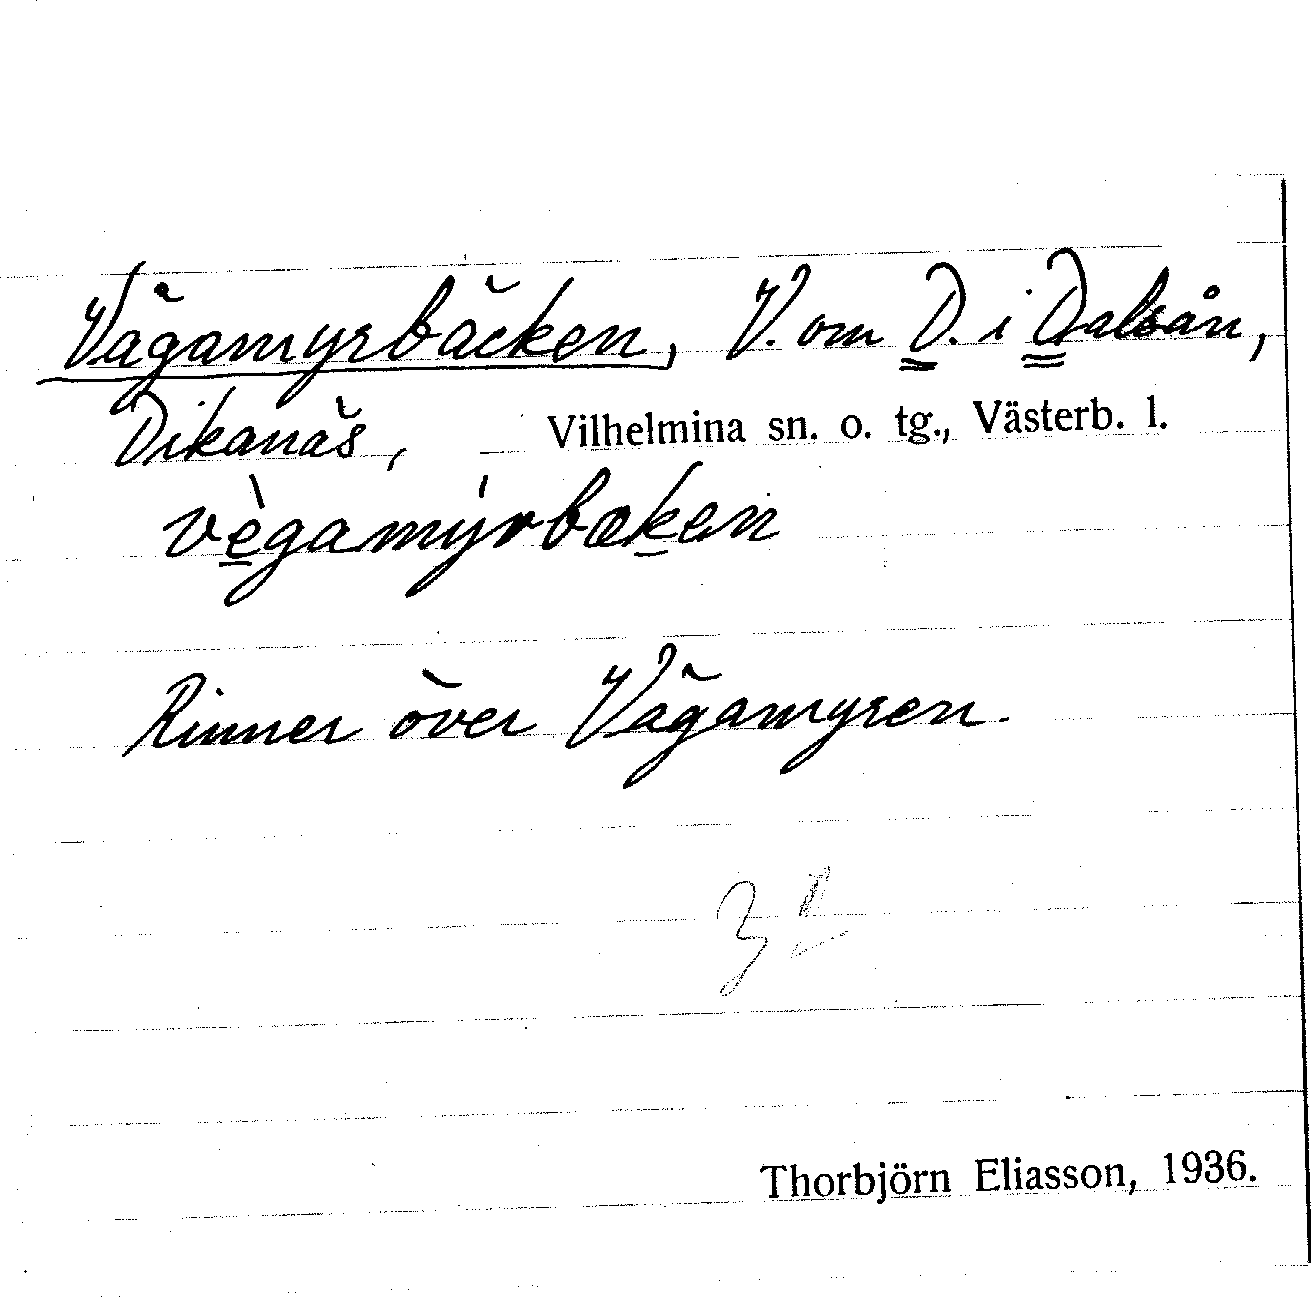 Vägamyrbäcken, V. om D. i Dalsån,
Dikanäs, Vilhelmina sn. o. tg., Västerb. l.
vègamýrbæken
Rinner över Vägamyren.
Thorbjörn Eliasson, 1936.